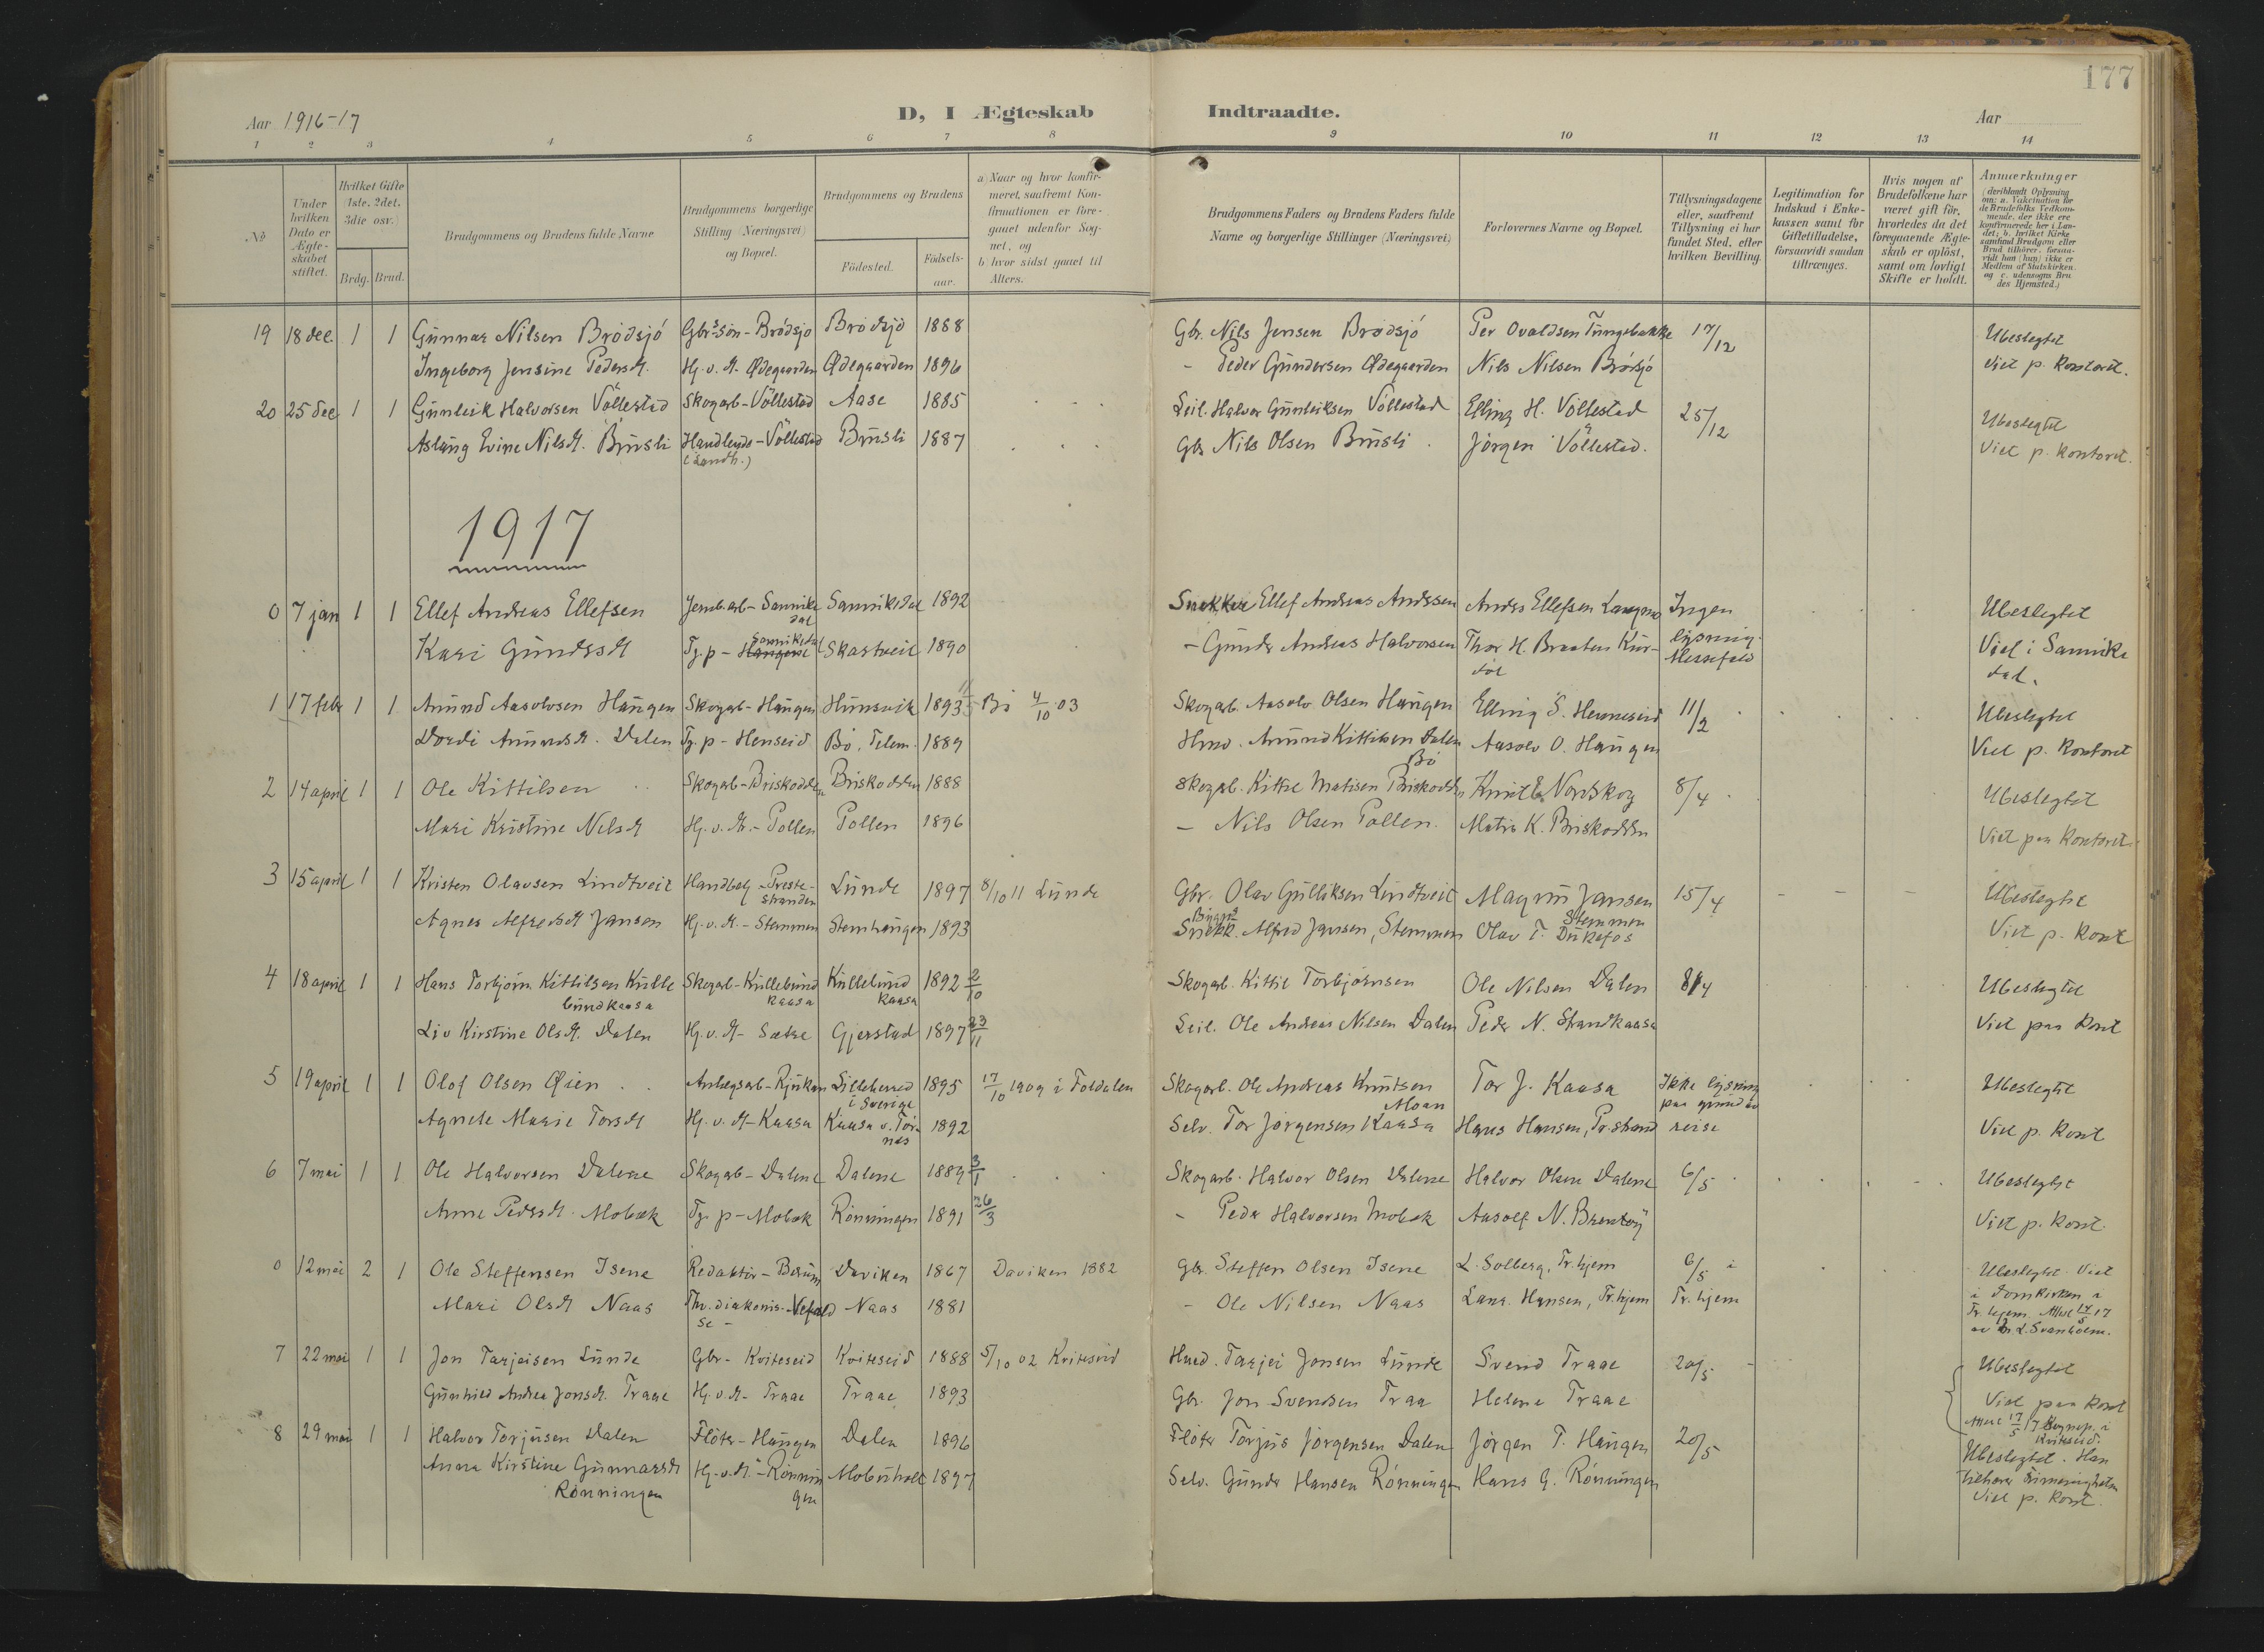 177
Aar 1916-17
D, I Ægteskab Indtraadte.
Aar
1 2 3 4 5 6 7 8 9 10 11 12 13 14
No
Under hvilken Dato er Ægteskabet stiftet.
Hvilket Gifte (1ste, 2det, 3die osv.)
Brdg. Brud.
Brudgommens og Brudens fulde Navne
Brudgommens borgerlige Stilling (Næringsvei) og Bopæl.
Brudgommens og Brudens
Födested.
Födselsaar.
a) Naar og hvor konfirmeret, saafremt Konfirmationen er foregaaet udenfor Sognet, og
b) hvor sidst gaaet til Alters.
Brudgommens Faders og Brudens Faders fulde Navne og borgerlige Stillinger (Næringsvei)
Forlovernes Navne og Bopæl.
Tillysningsdagene eller, saafremt Tillysning ei har fundet Sted, efter hvilken Bevilling.
Legitimation for Indskud i Enkekassen samt for Giftetilladelse, forsaavidt saadan tiltrænges.
Hvis nogen af Brudefolkene har været gift för, hvorledes da det foregaaende Ægteskab er oplöst, samt om lovligt Skifte er holdt.
Anmærkninger (deriblandt Oplysning om: a. Vaccination for de Brudefolks Vedkommende, der ikke ere konfirmerede her i Landet; b. hvilket Kirkesamfund Brudgom eller Brud tilhörer, forsaavidt han (hun) ikke er Medlem af Statskirken og c. udensogns Brudes Hjemsted.)
19 18 dec. 1 1 Gunnar Nilsen Brødsjó Gbr.søn-Brødsjø Brødsjø 1888 Gbr. Nils Jensen Brødsjó Per Ovaldsen Tungebakke 17/12 Ubeslegtet
Ingeborg Jensine Pedersd. Hj. v. M. Ødegaarden Ødegaarden 1896 - Peder Gundersen Ødegaarden Nils Nilsen Brødsjó Viet p. Kontoret.
20 25 dec 1 1 Gunleik Halvorsen Völlestad Skogarb-Völlestad Aase 1885 Leil. Halvor Gunleiksen Völlestad Elling H. Völlestad 25/12 Ubeslegtet
Aslaug Evine Nilsd. Brusli Handlende-Völlestad Brusli 1887 Gbr Nils Olsen Brusli Jörgen Völlestad. Viet p. Kontoret.
(Landh.)
1917
0 7 jan 1 1 Ellef Andreas Ellefsen Jernb.arb-Sannikedal Sannikedal 1892 Snekker Ellef Andreas Anderssen Anders Ellefsen Ingen Ubeslegtet
Kari Gundersd Tj. p - Haugene Sannikedal Skastveit 1890 - Gunder Andreas Halvorsen Thor H. Braaten Kurdöl lysning. Messefald Viet i Sannikedal.
1 17 febr 1 1 Amund Aasolvsen Haugen Skogarb-Haugen Hunsvik 1893 Bö 4/10 03 Skogarb. Aasolv Olsen Haugen Elling S. Henneseid 11/2 Ubeslegtet
Dordi Amundsd. Dalen Tj. p - Henseid Bö, Telem. 1889 Hmd. Amund Kittilsen Dalen Bö Aasolv O. Haugen Viet p. Kontoret
2 14 april 1 1 Ole Kittilsen Skogarb-Briskodden Briskodden 1888 Skogarb. Kittil Matisen Briskodden Knut E. Nordskog 8/4 Ubeslegtet
Mari Kristine Nilsd Hj. v. M. - Pollen Pollen 1896 - Nils Olsen Pollen. Matis K. Briskodden Viet paa Kontoret.
3 15 april 1 1 Kristen Olavsen Lindtveit Handbetj - Prestestranden Lunde 1897 8/10 11 Lunde Gbr. Olav Gulliksen Lindtveit Magnus Jansen Stemmen 15/4 Ubeslegtet
Agnes Alfredsd Jansen Hj. v. M. - Stemmen Stemhaugen 1893 Bygn. Snekk. Alfred Jansen, Stemmen Olav T. Dukefos Viet p. Kont
4 18 april 1 1 Hans Torbjörn Kittilsen Kullebundkaasa Skogarb-Kullebundkaasa Kullebundkaasa 1892 2/10 Skogarb. Kittil Torbjörnsen Ole Nilsen Dalen 8/4 Ubeslegtet
Liv Kirstine Olsd. Dalen Hj. v. M - Sætre Gjerstad 1897 23/11 Leil. Ole Andreas Nilsen Dalen Peder N. Strandkaasa Viet paa Kont
5 19 april 1 1 Olof Olsen Øien Anlegsarb-Rjukan Lilleherred i Sverige 1895 17/10 1909 i Foldalen Skogarb. Ole Andreas Knutsen Moan Tor J. Kaasa Ikke lysning paa grund av Ubeslegtet
Agnete Marie Torsd Hj. v. M - Kaasa Kaasa v. Tornes 1892 Selv. Tor Jörgensen Kaasa Hans Hansen, Pr.strand reise Viet p. Kont
6 7 mai 1 1 Ole Halvorsen Dalene Skogarb-Dalene Dalene 1889 3/1 Skogarb. Halvor Olsen Dalene Halvor Olsen Dalene 6/5 Ubeslegtet
Anne Pedersd. Mobæk Tj. p - Mobæk Rönningen 1891 26/3 - Peder Halvorsen Mobæk Aasolf N. Brentöy Viet p. Kont.
0 12 mai 2 1 Ole Steffensen Isene Redaktör - Bærum Daviken 1867 Daviken 1882 Gbr. Steffen Olsen Isene L. Solberg, Tr.hjem 6/5 i Ubeslegtet. Viet
Mari Olsd Naas diakonisse - Naas 1881 - Ole Nilsen Naas Lars. Hansen, Tr.hjem Tr. hjem i Domkirken i Tr.hjem. Attest 14/5 17 av L. Svanholm.
7 22 mai 1 1 Jon Tarjeisen Lunde Gbr - Kviteseid Kviteseid 1888 5/10 02 Kviteseid Hmd. Tarjei Jonsen Lunde Svend Traae 20/5 Ubeslegtet
Gunhild Andrea Jonsd. Traae Hj. v. M - Traae Traae 1893 Gbr. Jon Svendsen Traa Helene Traae Viet paa Kont
Attest 17/5 17 Sognep. i Kviteseid.
8 29 mai 1 1 Halvor Torjusen Dalen Flöter - Haugen Dalen 1896 Flöter Torjus Jörgensen Dalen Jörgen T. Haugen 20/5 Ubeslegtet. Han
Anna Kirstine Gunnarsd Rönningen Hj. v. M. - Rönningen Mobuholt 1897 Selv. Gunder Hansen Rönningen Hans G. Rönningen tilhører
Viet p. Kont.